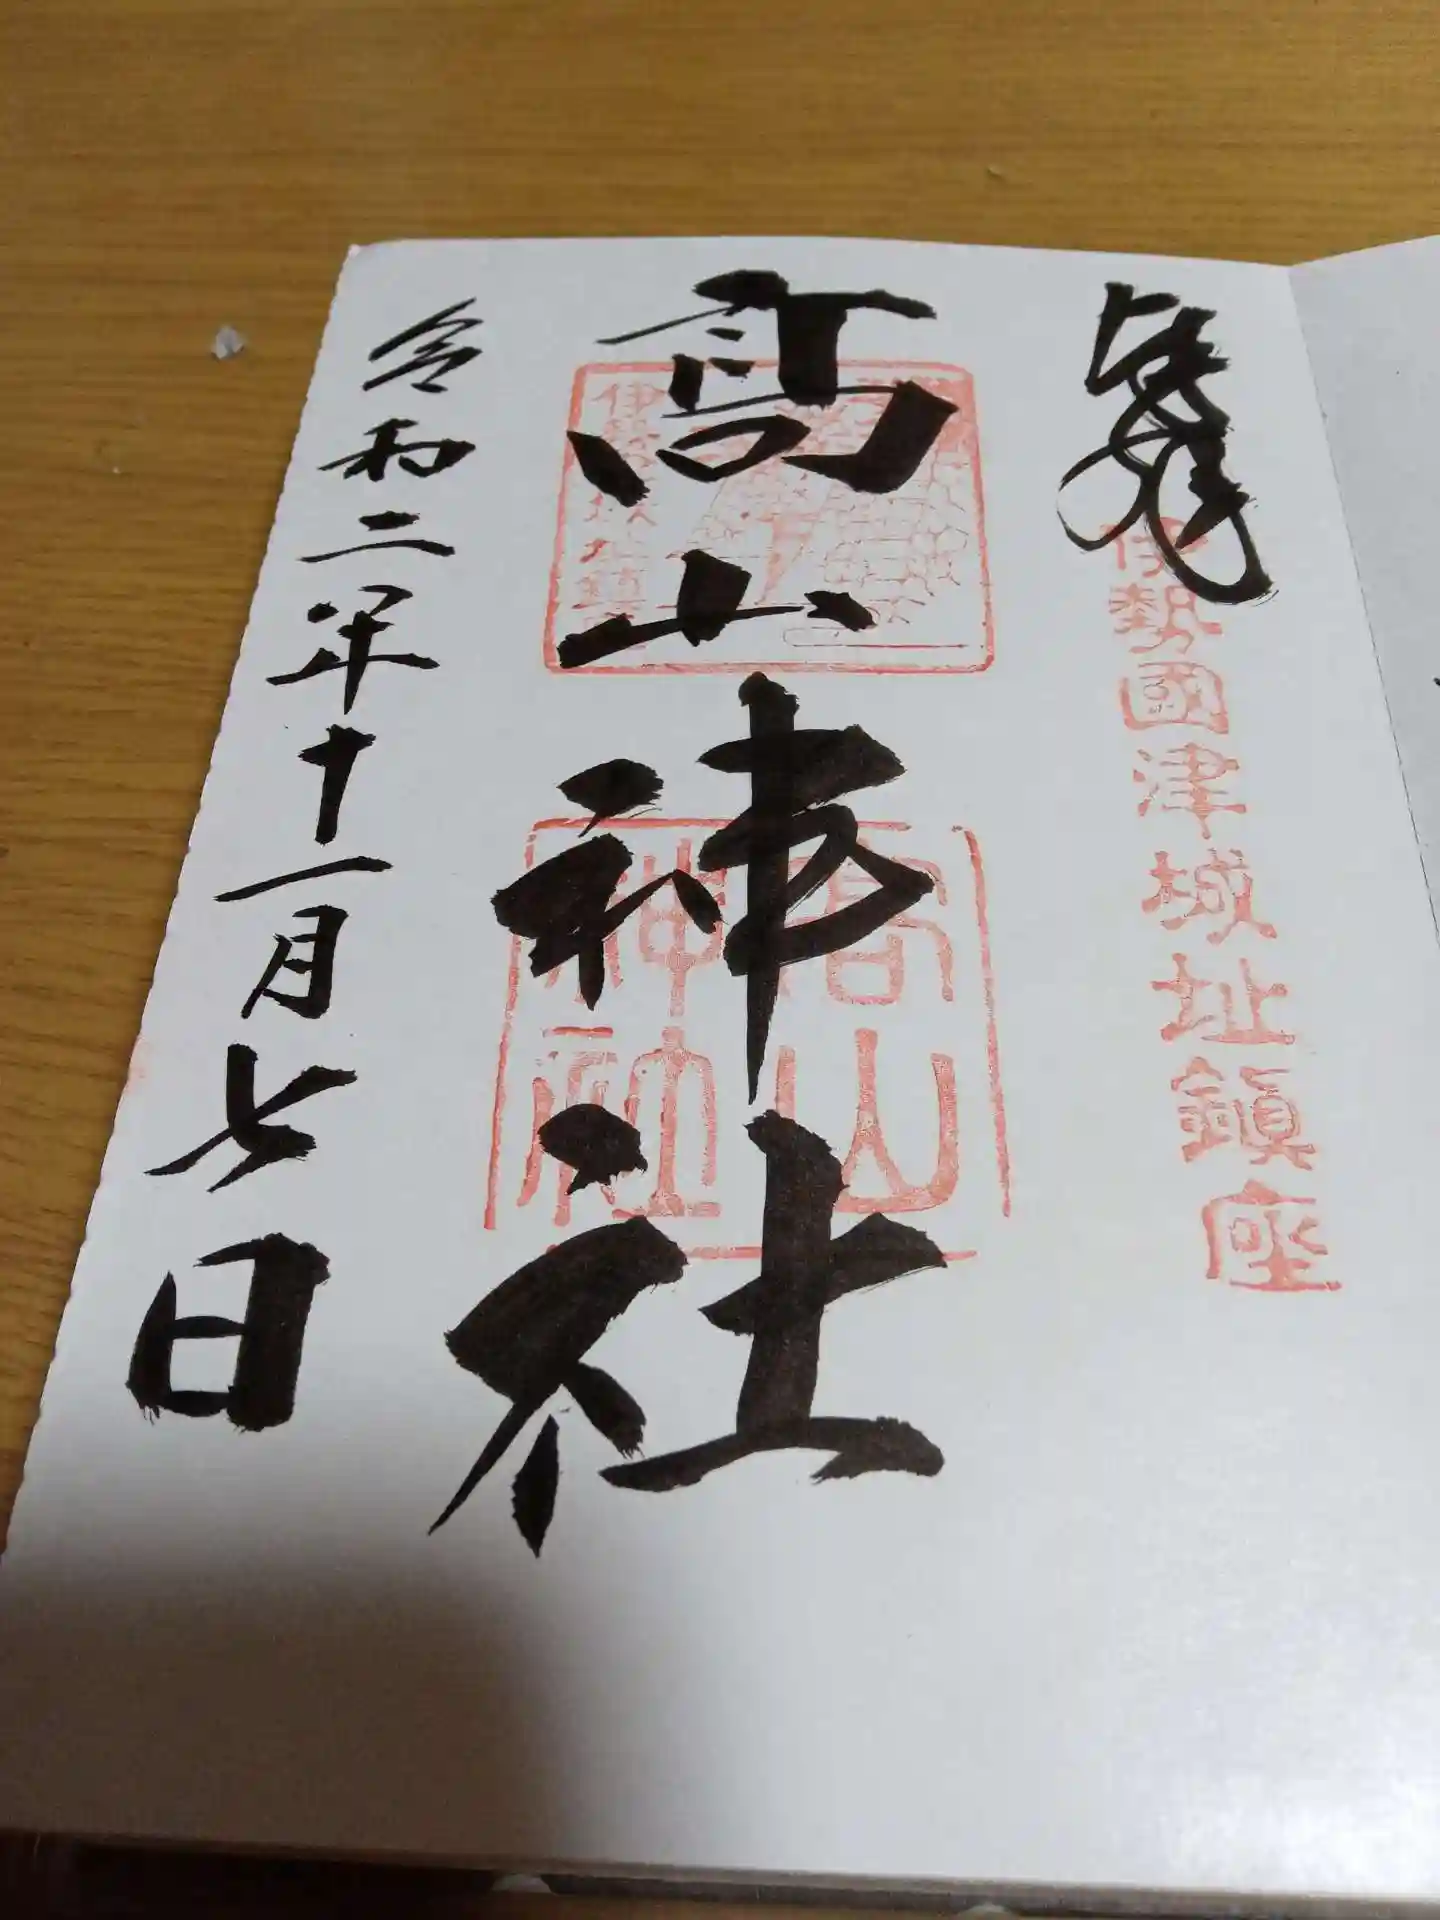 奉拝
伊勢國津城址鎮座
高山神社
高山
神社
令和二年十一月七日